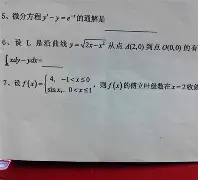 5、微分方程 y' - y = e^{-x} 的通解是
6、设 L 是沿曲线 y = \sqrt{2x - x^2} 从点 A(2,0) 到点 O(0,0) 的有
\int xdy - ydx =
7、设 f(x) = { 4, -1<x≤0
sin x, 0<x≤1 , 则 f(x) 的傅立叶级数在 x = 2 收敛